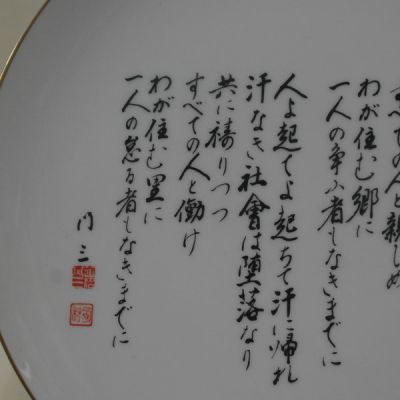 すべての人と親しめ
わが住む郷に
一人の争ふ者もなきまでに
人よ起てよ起ちて汗に帰れ
汗なき社會は堕落なり
共に祷りつつ
すべての人と働け
わが住む里に
一人の怠る者もなきまでに
門三